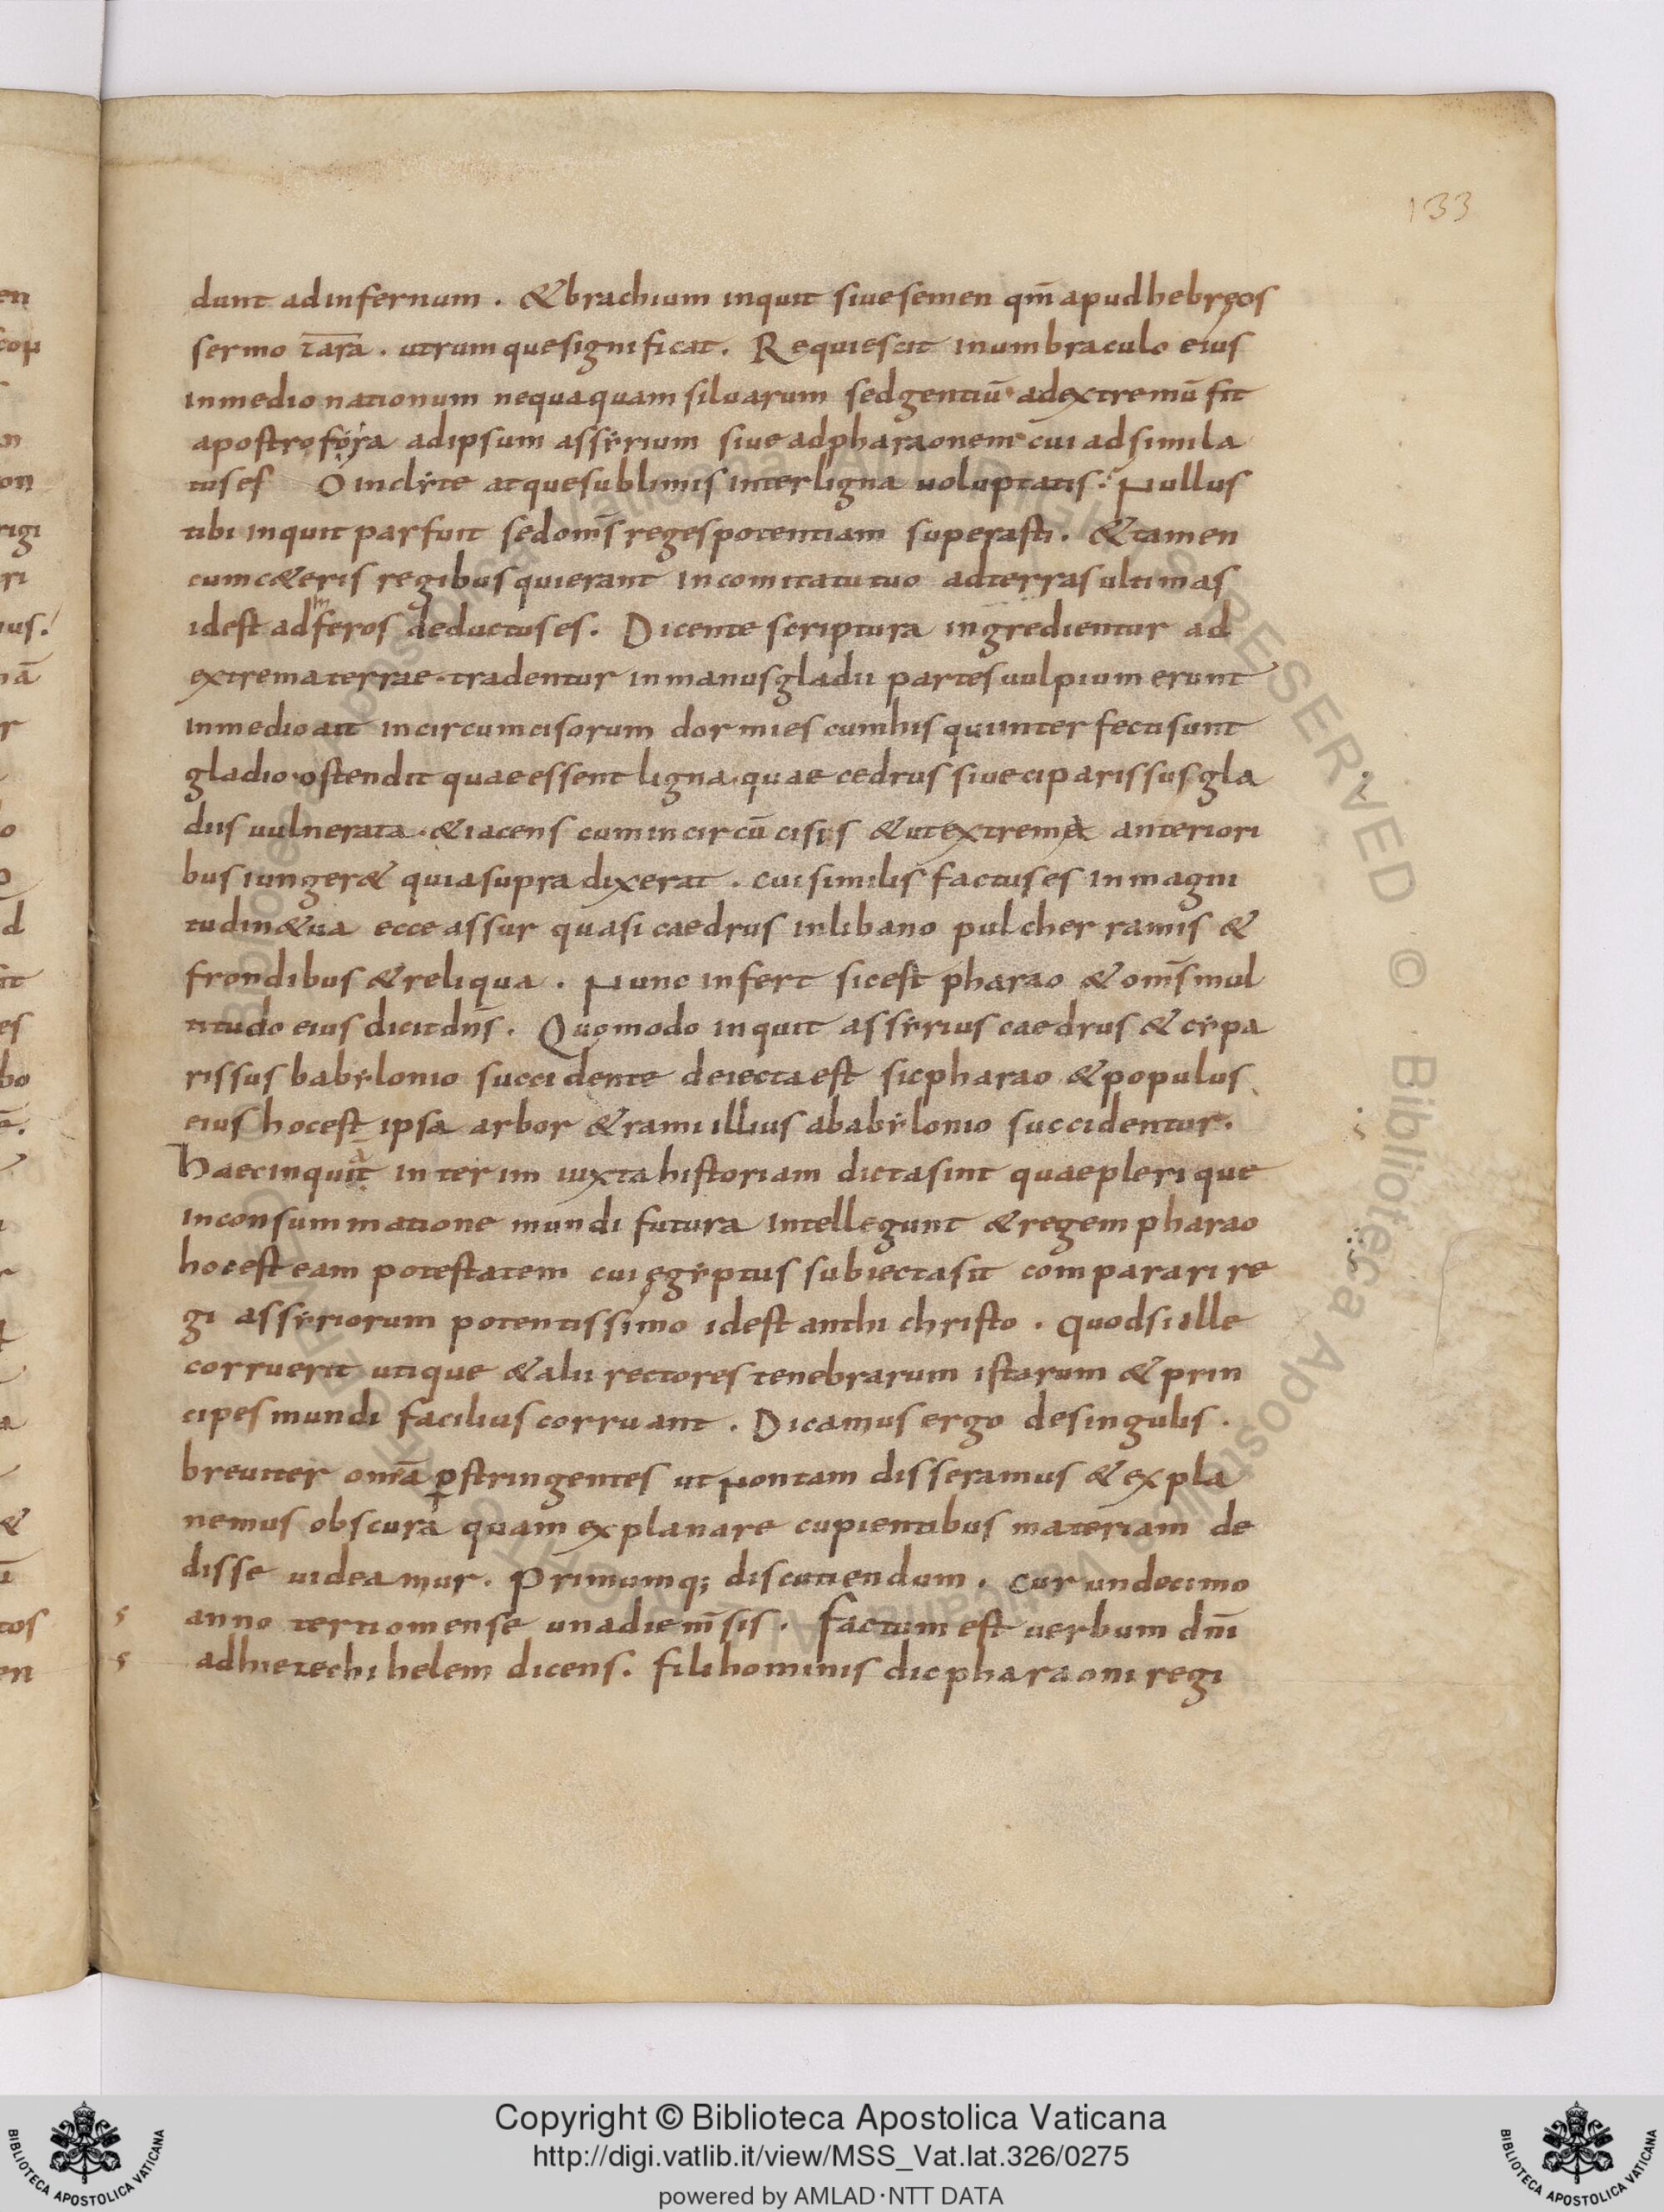 133
dunt adinfernum . & brachium inquit siue semen qm̄ apud hebręos
sermo zara . utrumque significat . Requiescit inumbraculo eius
inmedio nationum nequaquam siluarum sedgentiū adextremū fit
adipsum assẏrium siue adpharaonem cui adsimila
tus es O inclẏte atque sublimis interligna uoluptatis . Nullus
tibi inquit par fuit sed om̄s reges potentiam superasti . & tamen
cum c&eris regibus quierant incomitatu tuo adterras ultimas
idest ad inferos deductus es . Dicente scriptura ingredientur ad
extrema terrae . tradentur inmanus gladii partes uulpium erunt
inmedio ait incircumcisorum dormies cumhis qui interfecti sunt
gladio . ostendit quae essent ligna . quae cedrus siue ciparissus gla
diis uulnerata . & iacens cum incircū cisis & ut extrema anteriori
bus iunger& quia supra dixerat . cui similis factus es inmagni
tudin&ua ecce assur quasi caedrus inlibano pulcher ramis &
frondibus & reliqua . Nunc infert sic est pharao & om̄s mul
titudo eius dicit dn̄s . Quomodo inquit assẏrius caedrus & cẏpa
rissus babẏlonio succidente deiecta est sic pharao & populus
eius hoc est ipsa arbor & rami illius ababẏlonio succidentur .
Haec inquit interim iuxta historiam dicta sint quae plerique
inconsummatione mundi futura intellegunt & regem pharao
hoc est eam potestatem cui ęgẏptus subiecta sit comparari re
gi assẏriorum potentissimo idest anthi christo . quodsi ille
corruerit utique & alii rectores tenebrarum istarum & prin
cipes mundi facilius corruant . Dicamus ergo desingulis .
breuiter om̄ia p̱stringentes ut Nontam disseramus & expla
nemus obscura quam explanare cupientibus materiam de
disse uideamur . Primumq; discutiendum . cur undecimo
anno tertio mense una die m̄sis . Factum est uerbum dn̄i
adhiezechihelem dicens . fili hominis dic pharaoni regi
Copyright © Biblioteca Apostolica Vaticana
http://digi.vatlib.it/view/MSS_Vat.lat.326/0275
powered by AMLAD·NTT DATA
BIBLIOTECA APOSTOLICA VATICANA
BIBLIOTECA APOSTOLICA VATICANA